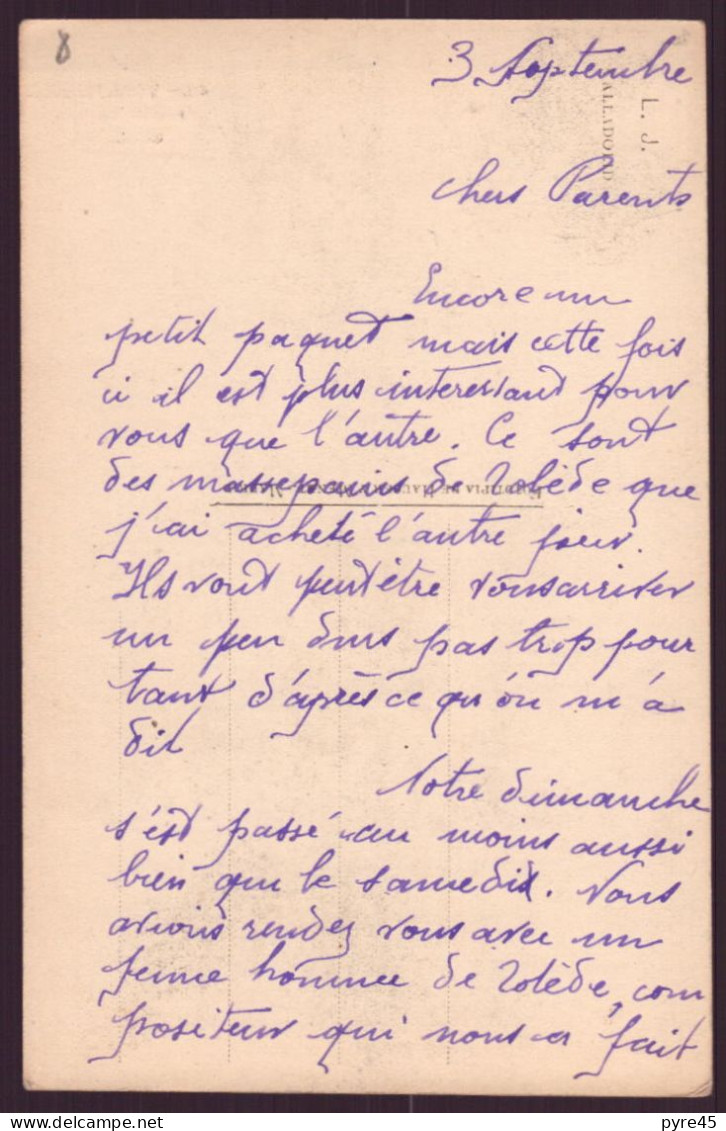 8
3 Septembre
L. J.
chers Parents
Encore un
petit paquet mais cette fois
ci il est plus interessant pour
vous que l'autre. Ce sont
des massepains de Tolède que
j'ai acheté l'autre jour.
Ils vont peut être vous arriver
un peu durs pas trop pour
tant d'après ce qu'on m'a
dit
Notre dimanche
s'est passé au moins aussi
bien que le samedi. Nous
avions rendez vous avec un
jeune homme de Tolède, com
positeur qui nous a fait
pyre45